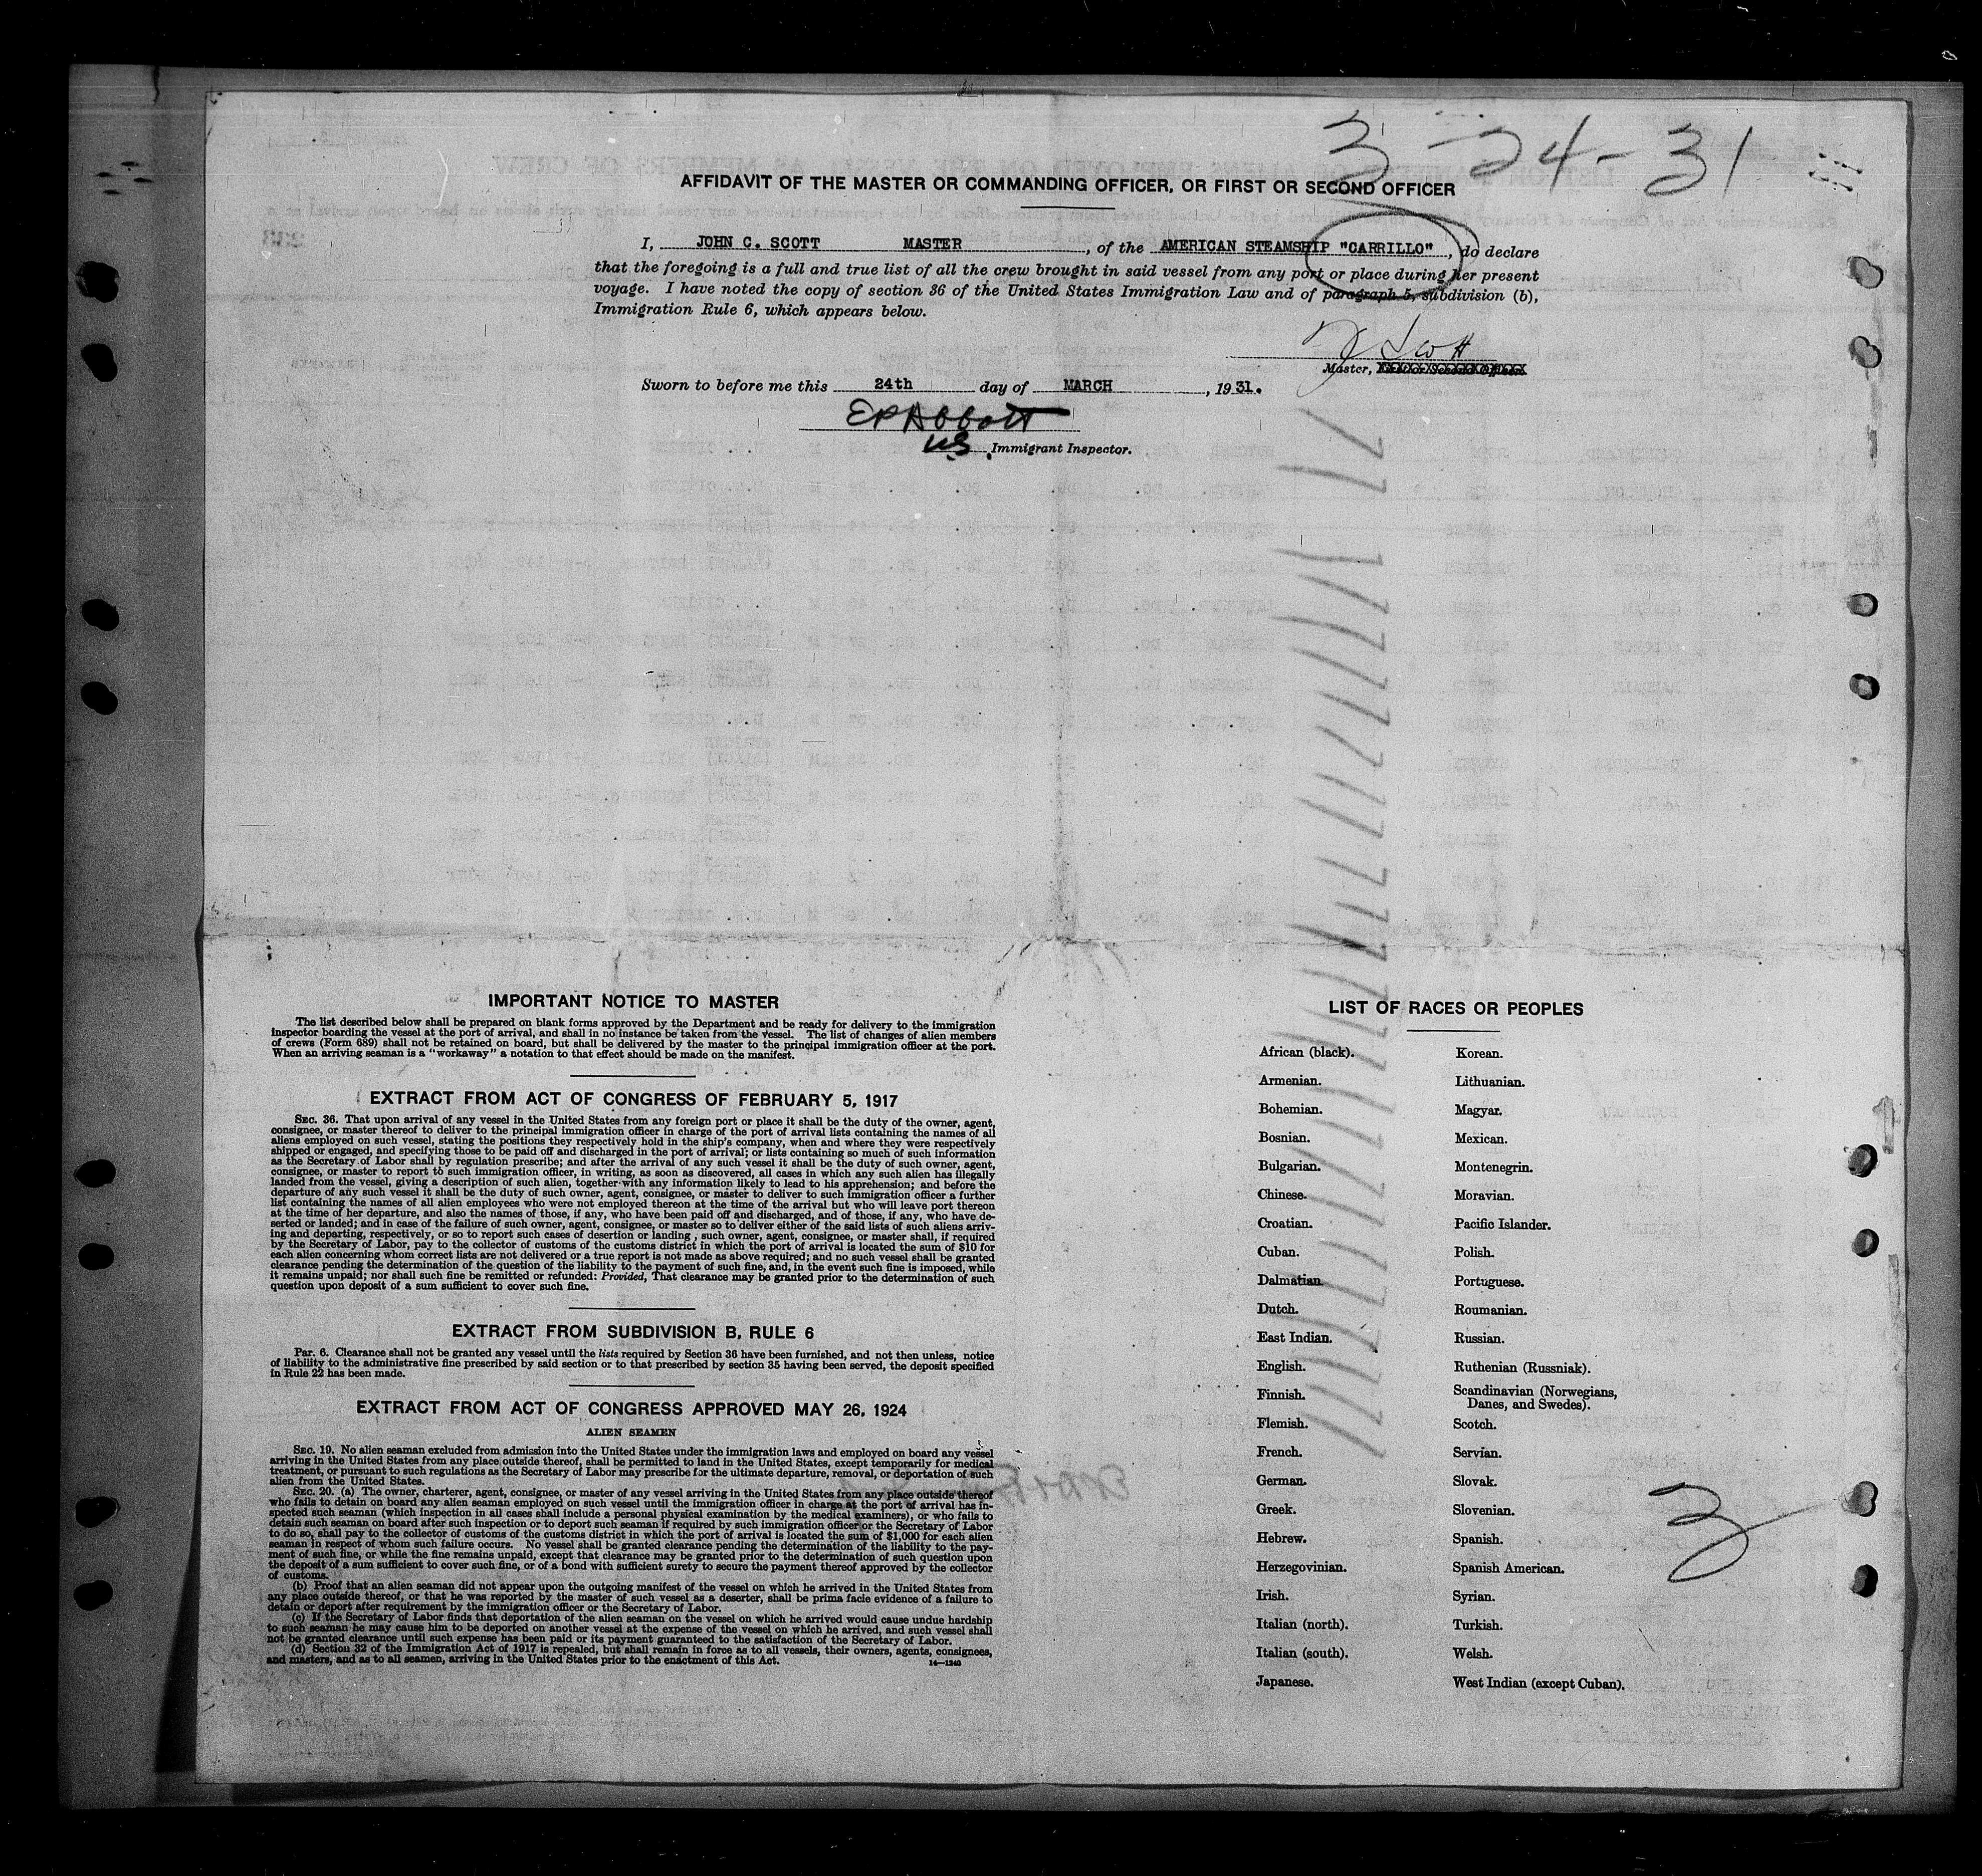 3-24-31
AFFIDAVIT OF THE MASTER OR COMMANDING OFFICER, OR FIRST OR SECOND OFFICER
I, JOHN C. SCOTT MASTER, of the AMERICAN STEAMSHIP "CARRILLO", do declare
that the foregoing is a full and true list of all the crew brought in said vessel from any port or place during her present
voyage. I have noted the copy of section 36 of the United States Immigration Law and of paragraph 5, subdivision (b),
Immigration Rule 6, which appears below.
Scott
Master,
Sworn to before me this 24th day of MARCH, 1931.
EP Abbott
US Immigrant Inspector.
IMPORTANT NOTICE TO MASTER
The list described below shall be prepared on blank forms approved by the Department and be ready for delivery to the immigration
inspector boarding the vessel at the port of arrival, and shall in no instance be taken from the vessel. The list of changes of alien members
of crews (Form 689) shall not be retained on board, but shall be delivered by the master to the principal immigration officer at the port.
When an arriving seaman is a "workaway" a notation to that effect should be made on the manifest.
EXTRACT FROM ACT OF CONGRESS OF FEBRUARY 5, 1917
SEC. 36. That upon arrival of any vessel in the United States from any foreign port or place it shall be the duty of the owner, agent,
consignee, or master thereof to deliver to the principal immigration officer in charge of the port of arrival lists containing the names of all
aliens employed on such vessel, stating the positions they respectively hold in the ship's company, when and where they were respectively
shipped or engaged, and specifying those to be paid off and discharged in the port of arrival; or lists containing so much of such information
as the Secretary of Labor shall by regulation prescribe; and after the arrival of any such vessel it shall be the duty of such owner, agent,
consignee, or master to report to such immigration officer, in writing, as soon as discovered, all cases in which any such alien has illegally
landed from the vessel, giving a description of such alien, together with any information likely to lead to his apprehension; and before the
departure of any such vessel it shall be the duty of such owner, agent, consignee, or master to deliver to such immigration officer a further
list containing the names of all alien employees who were not employed thereon at the time of the arrival but who will leave port thereon
at the time of her departure, and also the names of those, if any, who have been paid off and discharged, and of those, if any, who have de-
serted or landed; and in case of the failure of such owner, agent, consignee, or master so to deliver either of the said lists of such aliens arriv-
ing and departing, respectively, or so to report such cases of desertion or landing, such owner, agent, consignee, or master shall, if required
by the Secretary of Labor, pay to the collector of customs of the customs district in which the port of arrival is located the sum of $10 for
each alien concerning whom correct lists are not delivered or a true report is not made as above required; and no such vessel shall be granted
clearance pending the determination of the question of the liability to the payment of such fine, and, in the event such fine is imposed, while
it remains unpaid; nor shall such fine be remitted or refunded: Provided, That clearance may be granted prior to the determination of such
question upon deposit of a sum sufficient to cover such fine.
EXTRACT FROM SUBDIVISION B, RULE 6
Par. 6. Clearance shall not be granted any vessel until the lists required by Section 36 have been furnished, and not then unless, notice
of liability to the administrative fine prescribed by said section or to that prescribed by section 35 having been served, the deposit specified
in Rule 22 has been made.
EXTRACT FROM ACT OF CONGRESS APPROVED MAY 26, 1924
ALIEN SEAMEN
SEC. 19. No alien seaman excluded from admission into the United States under the immigration laws and employed on board any vessel
arriving in the United States from any place outside thereof, shall be permitted to land in the United States, except temporarily for medical
treatment, or pursuant to such regulations as the Secretary of Labor may prescribe for the ultimate departure, removal, or deportation of such
alien from the United States.
SEC. 20. (a) The owner, charterer, agent, consignee, or master of any vessel arriving in the United States from any place outside thereof
who fails to detain on board any alien seaman employed on such vessel until the immigration officer in charge at the port of arrival has in-
spected such seaman (which inspection in all cases shall include a personal physical examination by the medical examiners), or who fails to
detain such seaman on board after such inspection or to deport such seaman if required by such immigration officer or the Secretary of Labor
to do so, shall pay to the collector of customs of the customs district in which the port of arrival is located the sum of $1,000 for each alien
seaman in respect of whom such failure occurs. No vessel shall be granted clearance pending the determination of the liability to the pay-
ment of such fine, or while the fine remains unpaid, except that clearance may be granted prior to the determination of such question upon
the deposit of a sum sufficient to cover such fine, or of a bond with sufficient surety to secure the payment thereof approved by the collector
of customs.
(b) Proof that an alien seaman did not appear upon the outgoing manifest of the vessel on which he arrived in the United States from
any place outside thereof, or that he was reported by the master of such vessel as a deserter, shall be prima facie evidence of a failure to
detain or deport after requirement by the immigration officer or the Secretary of Labor.
(c) If the Secretary of Labor finds that deportation of the alien seaman on the vessel on which he arrived would cause undue hardship
to such seaman he may cause him to be deported on another vessel at the expense of the vessel on which he arrived, and such vessel shall
not be granted clearance until such expense has been paid or its payment guaranteed to the satisfaction of the Secretary of Labor.
(d) Section 32 of the Immigration Act of 1917 is repealed, but shall remain in force as to all vessels, their owners, agents, consignees,
and masters, and as to all seamen, arriving in the United States prior to the enactment of this Act.
14—1240
LIST OF RACES OR PEOPLES
African (black).
Armenian.
Bohemian.
Bosnian.
Bulgarian.
Chinese.
Croatian.
Cuban.
Dalmatian.
Dutch.
East Indian.
English.
Finnish.
Flemish.
French.
German.
Greek.
Hebrew.
Herzegovinian.
Irish.
Italian (north).
Italian (south).
Japanese.
Korean.
Lithuanian.
Magyar.
Mexican.
Montenegrin.
Moravian.
Pacific Islander.
Polish.
Portuguese.
Roumanian.
Russian.
Ruthenian (Russniak).
Scandinavian (Norwegians,
Danes, and Swedes).
Scotch.
Servian.
Slovak.
Slovenian.
Spanish.
Spanish American.
Syrian.
Turkish.
Welsh.
West Indian (except Cuban).
3